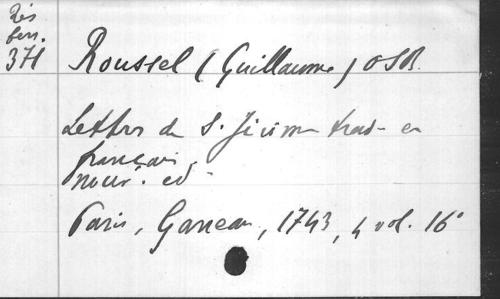 Rés
ferr.
371
Roussel (Guillaume) OSB.
Lettres de S. Jérôme trad. en
français,
nouv. ed.
Paris, Garneau, 1743, 4 vol. 16°